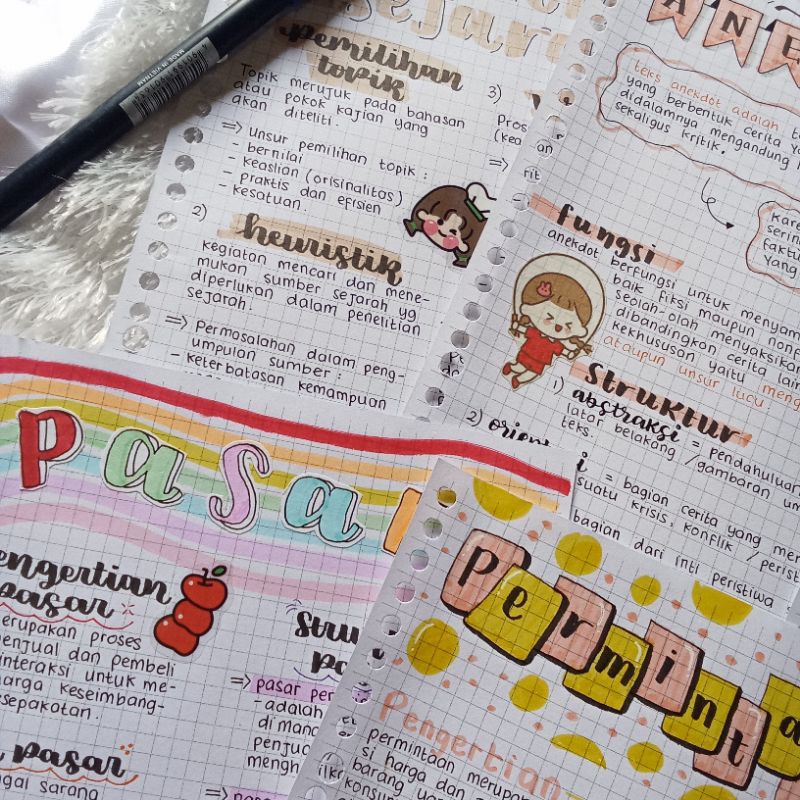 MADE IN VIETNAM
sejara
pemilihan
topik
Topik merujuk pada bahasan
atau pokok kajian yang
akan diteliti.
=> unsur pemilihan topik :
- bernilai
- keaslian (orisinalitas)
- praktis dan efisien
- kesatuan.
2) heuristik
kegiatan mencari dan mene-
mukan sumber sejarah yg
diperlukan dalam penelitian
sejarah.
=> permosalahan dalam peng-
umpulan sumber :
- keterbatasan kemampuan
3)
Pros
(kea
=>
ANE
teks anekdot adalah
yang berbentuk cerita
didalamnya mengandung
sekaligus kritik.
kare
serin
faktu
yang
fungsi
anekdot berfungsi untuk menyam
baik fiksi maupun nonf
seolah-olah menyaksikan
dibandingkan cerita lain
kekhususan yaitu meng
ataupun unsur lucu
struktur
1) abstraksi = Pendahuluan
latar belakang / gambaran um
teks.
2) orien
= bagian cerita yang mer
suatu krisis, konflik / perist
bagian dari inti peristiwa
Pasa
engertian
pasar
erupakan proses
enjual dan pembeli
interaksi untuk me-
harga keseimbang-
esepakatan.
pasar
ngai sarang
stru
pa
=> pasar per
- adalah
dimana
penjua
mengh
Permint
Pengertian
permintaan merupa
si harga dan
barang ya
konsum